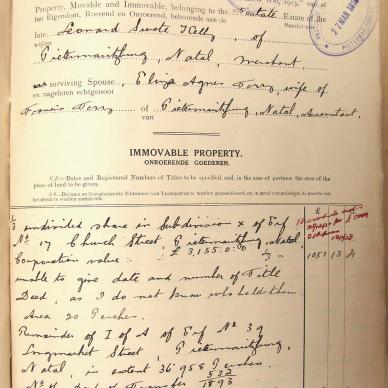 Property, Movable and Immovable, belonging to the Estate of the
al het Eigendom, Roerend en Onroerend, behorende aan de Boedel van
late Leonard Swete Kelly, of
wijlen
Pietermaritzburg, Natal, merchant
and surviving Spouse, Eliza Agnes Terry, wife of
en nagelaten echtgenoot
Francis Terry of Pietermaritzburg, Natal, Accountant.
van
IMMOVABLE PROPERTY.
ONROERENDE GOEDEREN.
N.B.—Dates and Registered Numbers of Titles to be specified, and, in the case of portions the area of the
piece of land to be given.
N.B.—Datums en Geregistreerde Nummers van Transporten te worden gespecificeerd, en, in geval van gedeelten de grootte van
het grond te worden aangegeven.
£
1/3 undivided share in Subdivision X of Erf
No. 17 Church Street, Pietermaritzburg, Natal
Corporation value: £3,155.0.0 1/3 = 1051 13 4
unable to give date and number of Title
Deed, as I do not know who holds them
Area 20 Perches.
Remainder of I of A of Erf No 39
Longmarket Street, Pietermaritzburg,
Natal, in extent 36.958 Perches.
No. of Deed of Transfer 532
1893